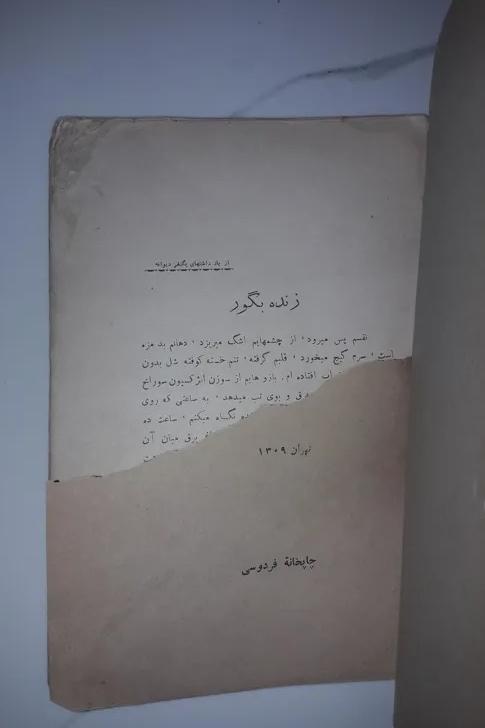 از یادداشتهای یکنفر دیوانه
زنده بگور
نفسم پس میرود ، از چشمهایم اشک میریزد ، دهانم بد مزه
است ، سرم گیج میخورد ، قلبم گرفته ، تنم خسته کوفته شل بدون
افتاده ام . بازو هایم از سوزن انژکسیون سوراخ
و بوی تب میدهد ، به ساعتی که روی
نگاه میکنم ، ساعت ده
برق میان آن
تهران ۱۳۰۹
چاپخانهٔ فردوسی